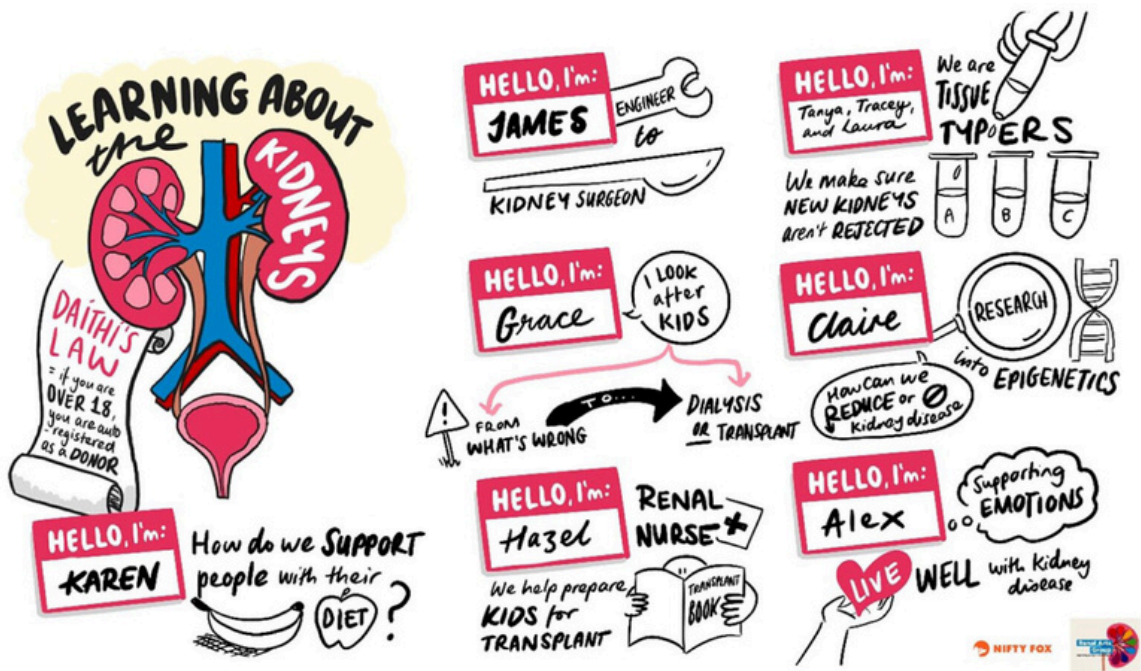 LEARNING ABOUT
the
KIDNEYS
DAITHI'S
LAW
= if you are
OVER 18,
you are auto
-registered
as a DONOR
HELLO, I'm:
KAREN
How do we SUPPORT
people with their
DIET ?
HELLO, I'm:
JAMES
ENGINEER
to
KIDNEY SURGEON
HELLO, I'm:
Grace
I LOOK
after
KIDS
FROM
WHAT'S WRONG
TO...
DIALYSIS
OR TRANSPLANT
HELLO, I'm:
Hazel
RENAL
NURSE
We help prepare
KIDS for
TRANSPLANT
TRANSPLANT
BOOK
HELLO, I'm:
Tanya, Tracey,
and Laura
We are
TISSUE
TYPERS
We make sure
NEW KIDNEYS
aren't REJECTED
A B C
HELLO, I'm:
Claire
RESEARCH
into EPIGENETICS
How can we
REDUCE or
Kidney disease
HELLO, I'm:
Alex
Supporting
EMOTIONS
LIVE WELL with kidney
disease
NIFTY FOX
Renal Arts
Group